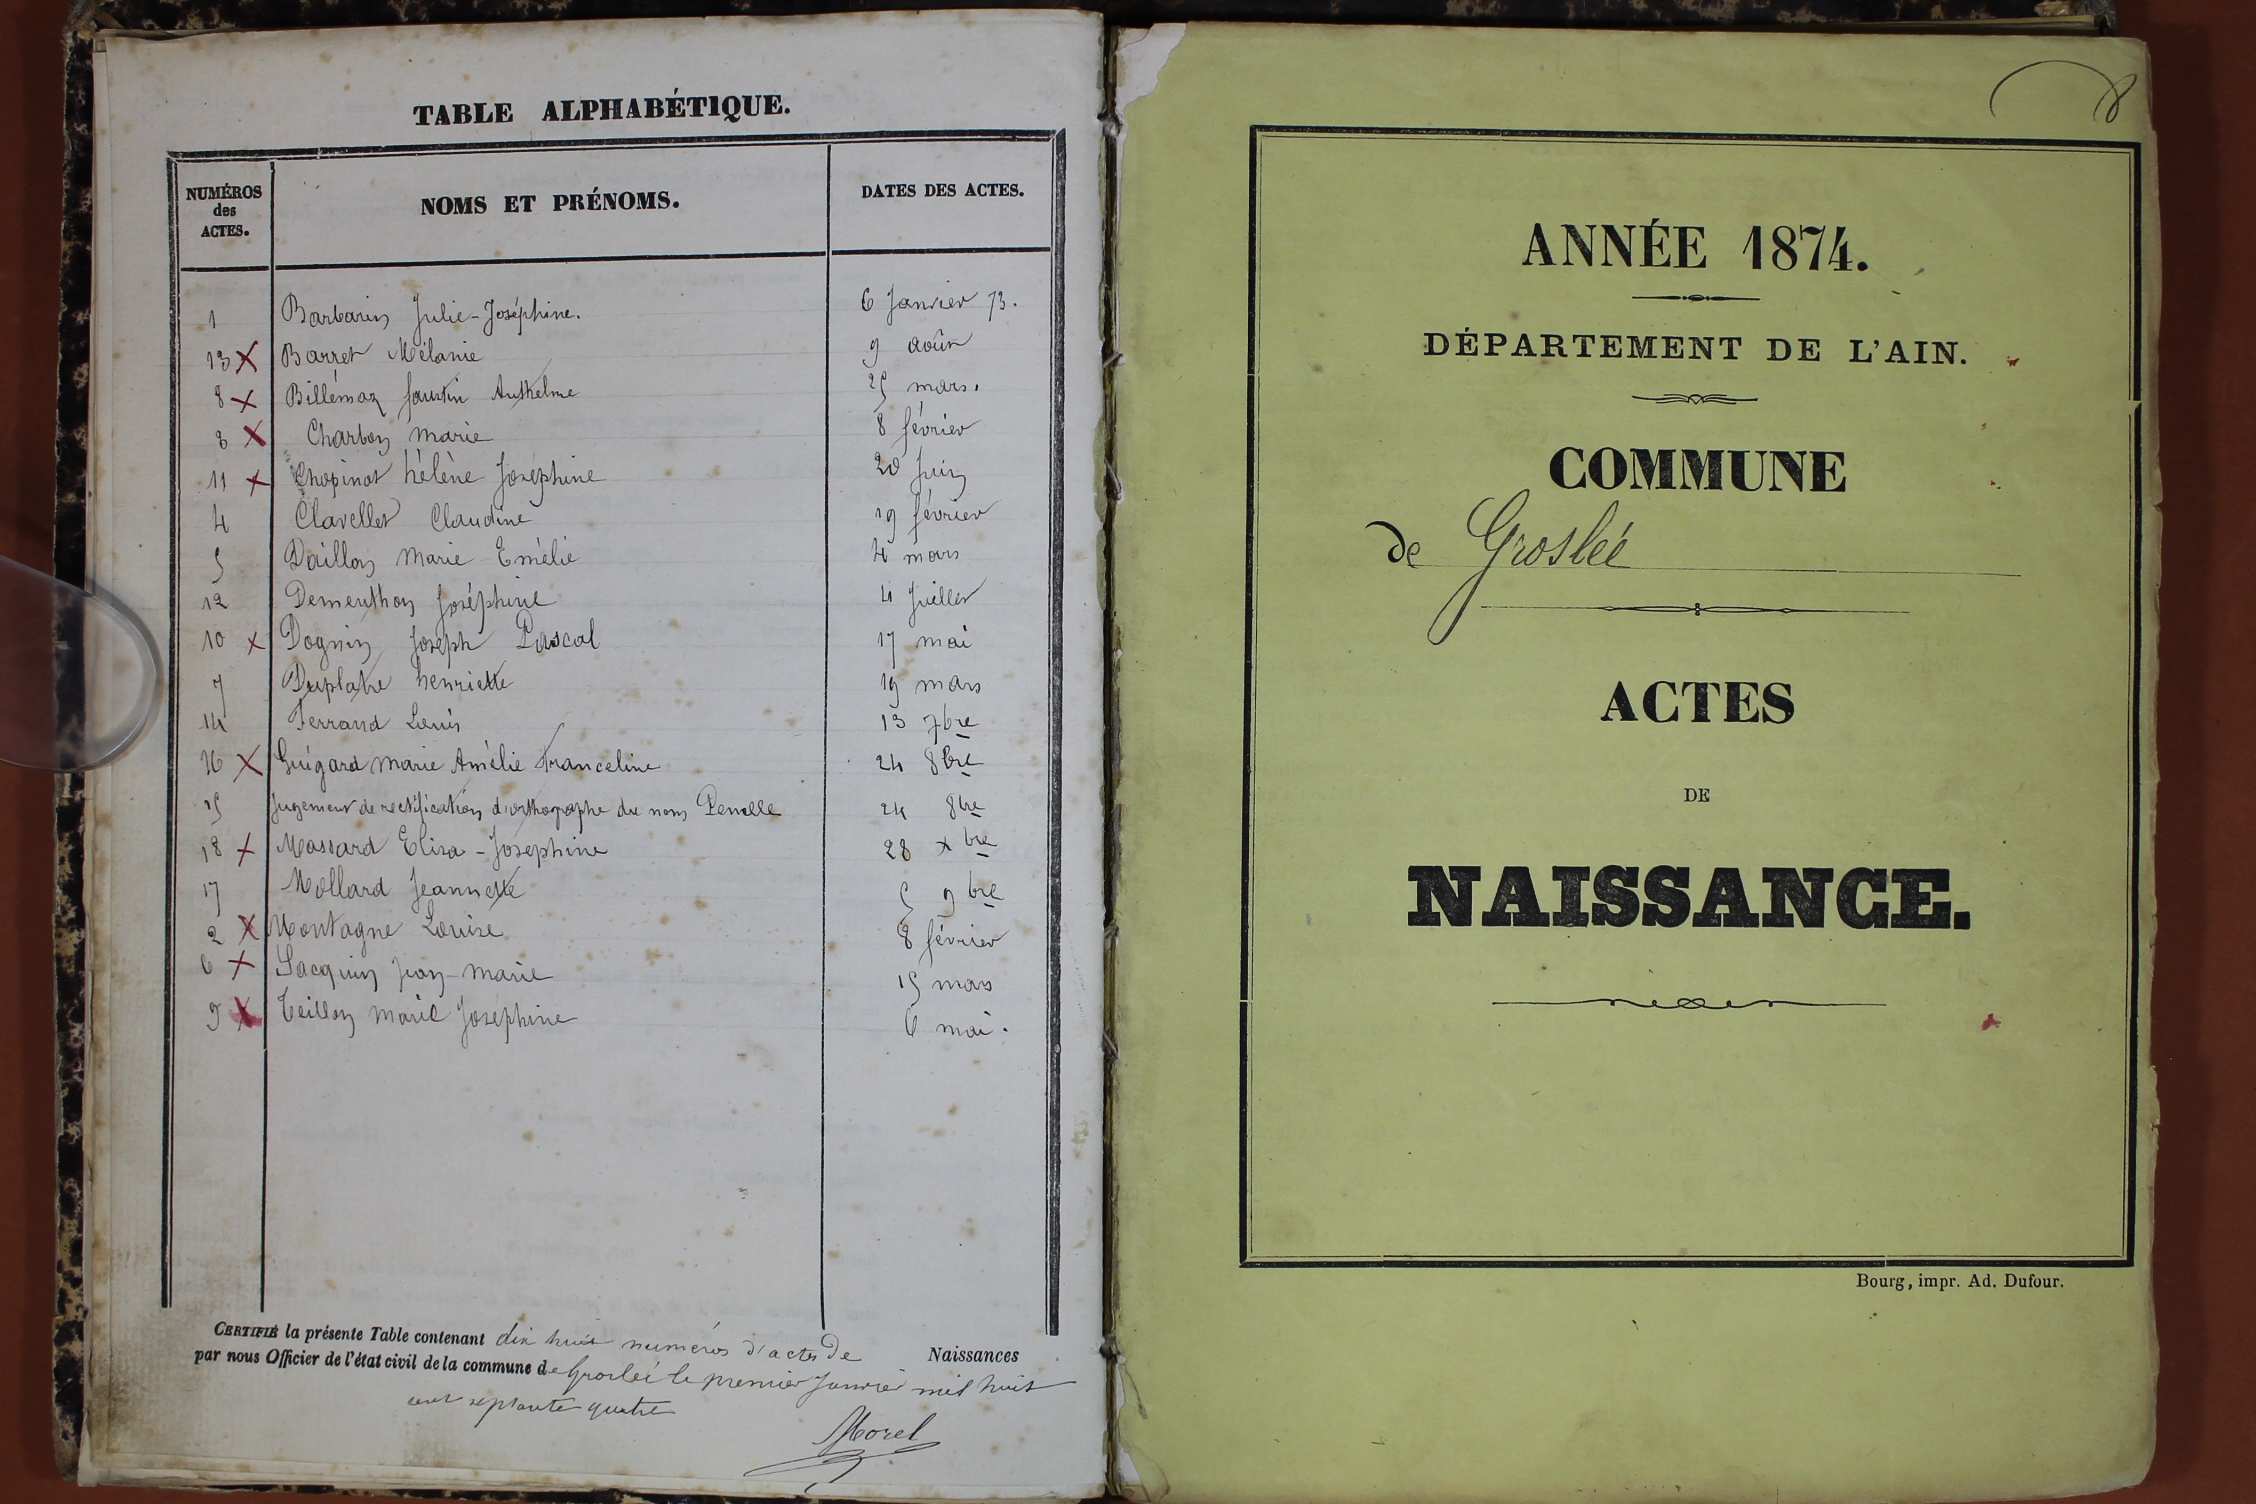 TABLE ALPHABÉTIQUE.
NUMÉROS des ACTES. NOMS ET PRÉNOMS. DATES DES ACTES.
1 Barbarin Julie-Joséphine. 6 Janvier 73.
13 X Barret Mélanie 9 août
8 X Billémaz faustin Anthelme 25 mars.
3 X Charbon marie 8 février
11 X Chopinot hélène Joséphine 20 Juin
4 Clavellet Claudine 19 février
5 Daillon Marie Emélie 4 mars
12 Dementhon Joséphine 4 Juillet
10 X Dognin Joseph Pascal 17 mai
7 Duplatre henriette 19 mars
14 Ferrand Louis 13 7bre
16 X Guigard marie Amélie Franceline 24 8bre
15 Jugement de rectification d'orthographe du nom Penelle 24 8bre
18 X Massard Eliza-Joséphine 28 xbre
17 Mollard Jeannette 5 9bre
2 X Montagne Louise 8 février
6 X Sacquin Jean-marie 15 mars
9 X Teillon marie Joséphine 6 mai.
CERTIFIÉ la présente Table contenant dix huit numéros d'actes de Naissances
par nous Officier de l'état civil de la commune de Groslée le premier Janvier mil huit
cent septante quatre
Morel
8
ANNÉE 1874.
DÉPARTEMENT DE L'AIN.
COMMUNE
de Groslée
ACTES
DE
NAISSANCE.
Bourg, impr. Ad. Dufour.